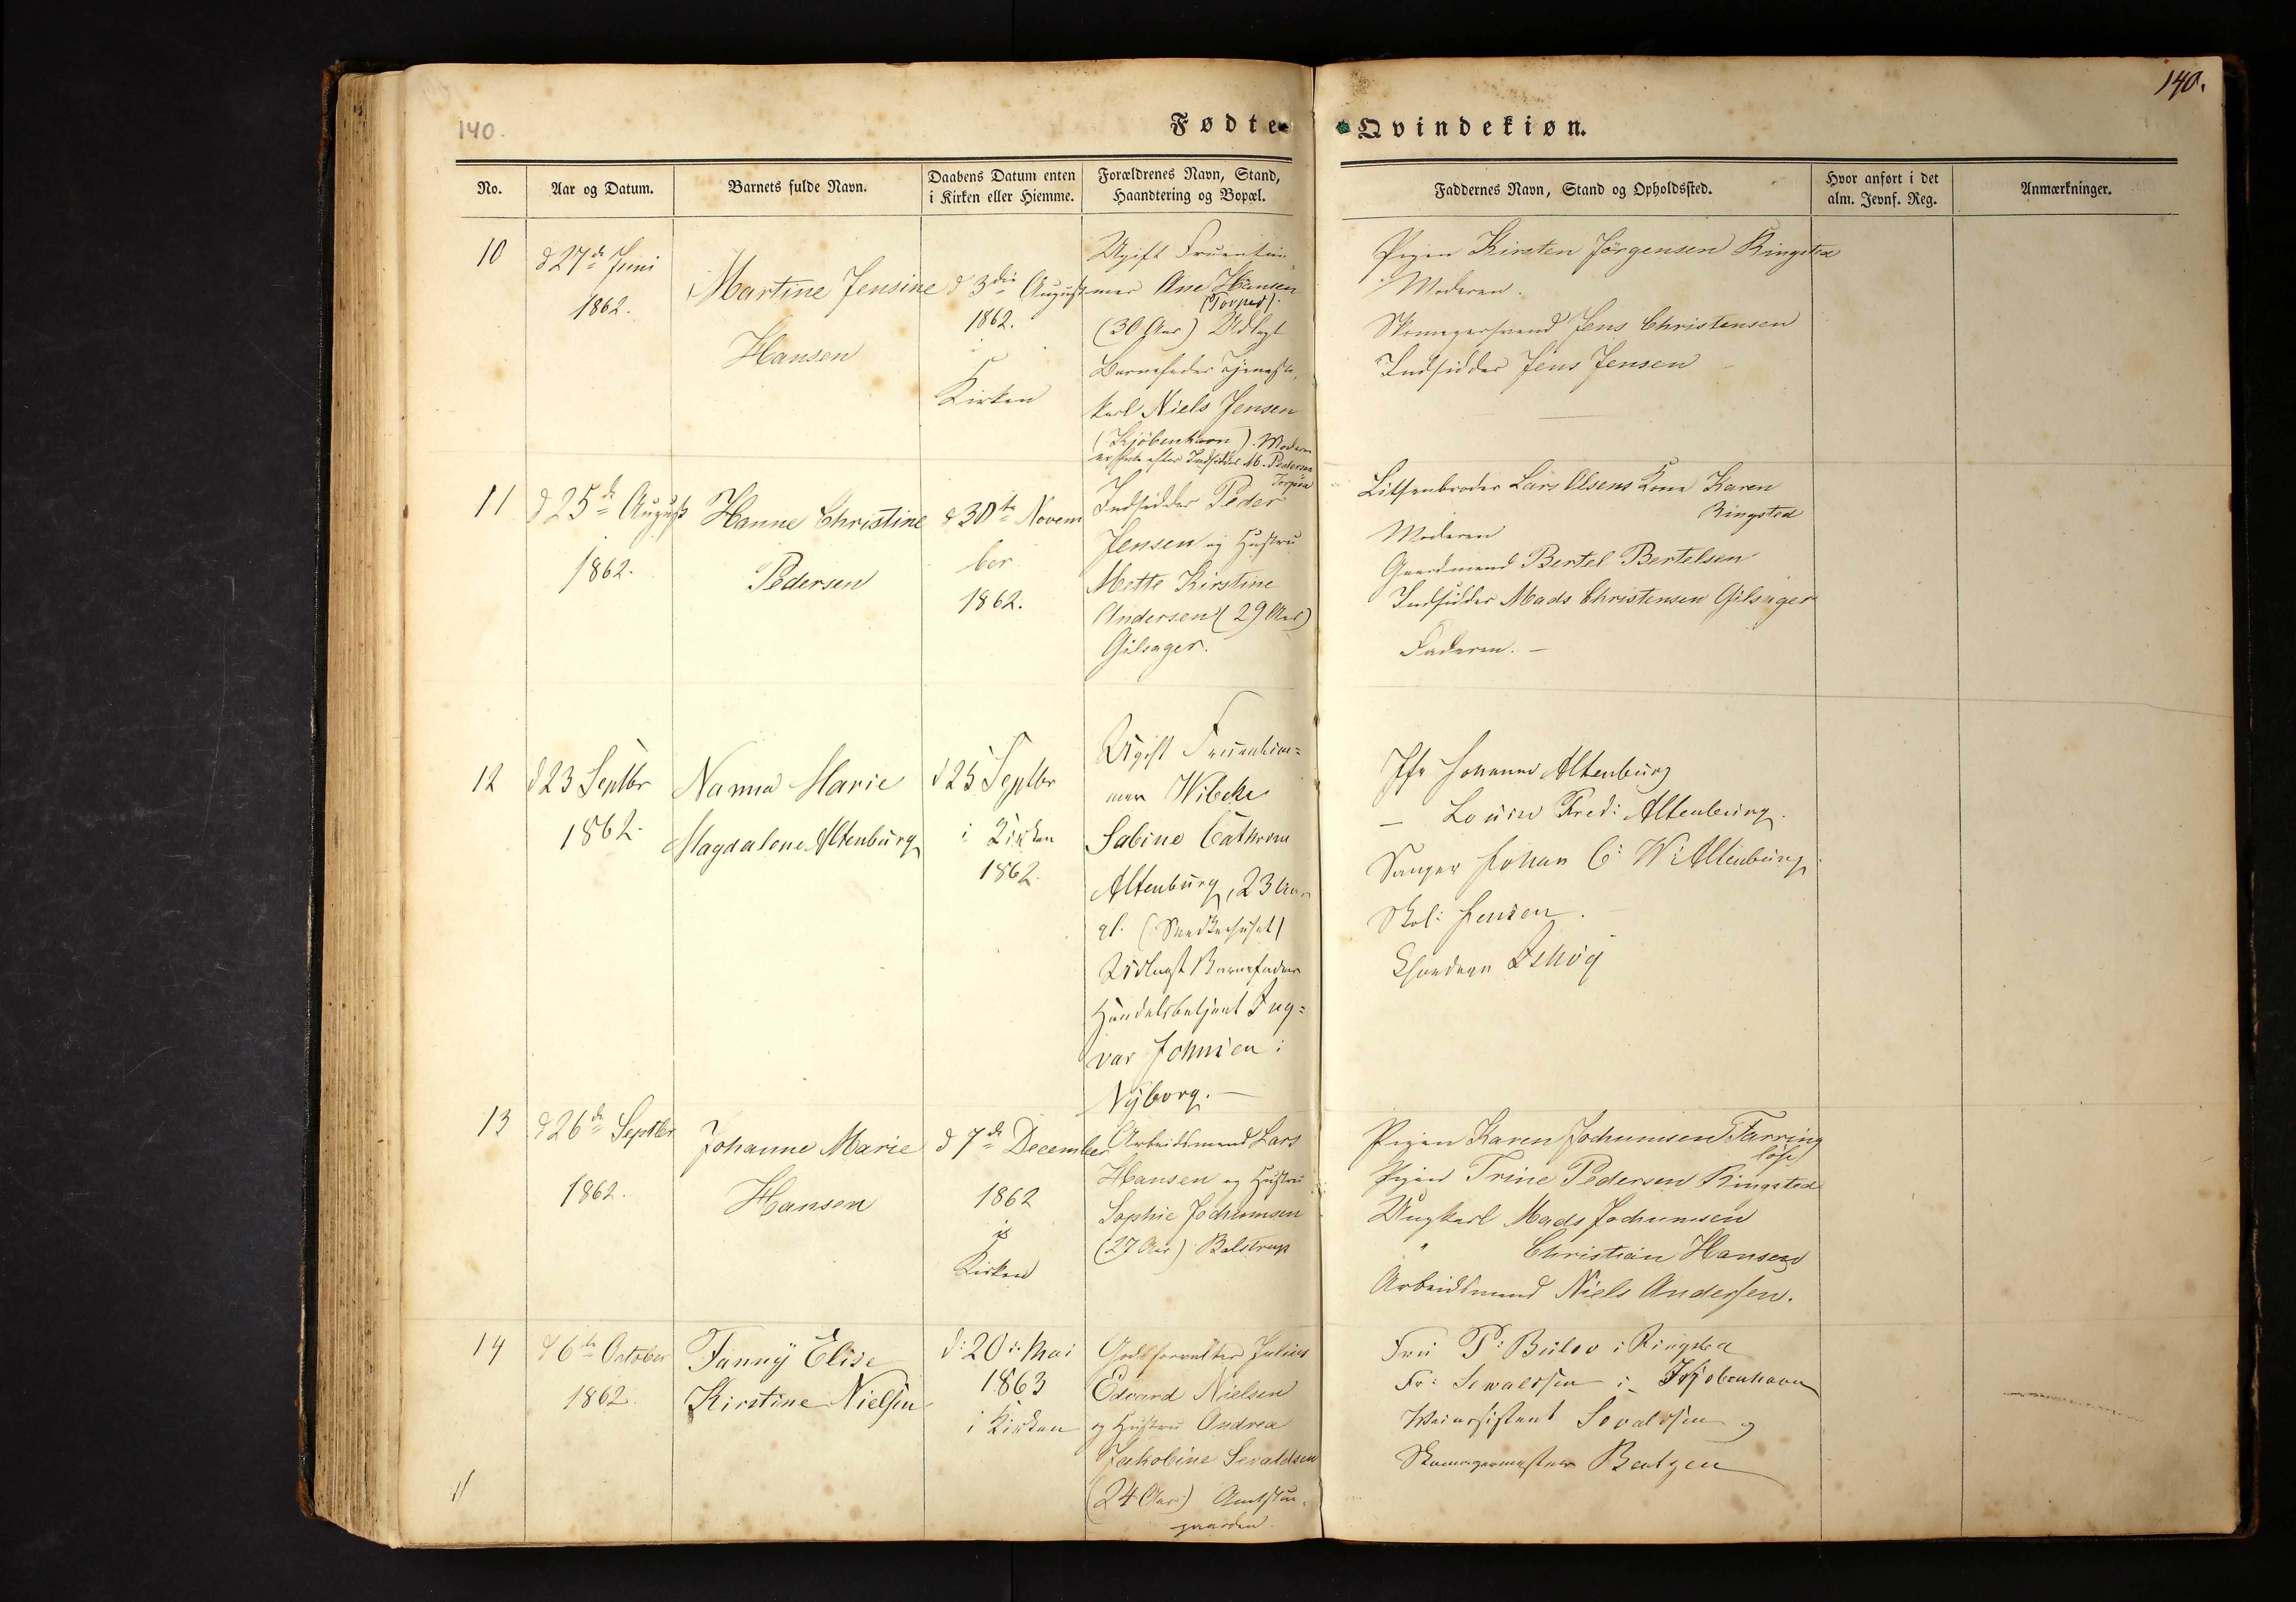 140.
140.
Fødte Qvindekiøn.
No.
Aar og Datum.
Barnets fulde Navn.
Daabens Datum enten
i Kirken eller Hiemme.
Forældrenes Navn, Stand,
Haandtering og Bopæl.
Faddernes Navn, Stand og Opholdssted.
Hvor anført i det
alm. Jevnf. Reg.
Anmærkninger.
10
d 27de Juni
1862.
Martine Jensine
Hansen
d 3die August
1862.
i
Kirken
Ugift Fruentim
mer Ane Hansen
(Torpet).
(30 Aar) Udlagt
Barnefader Tjeneste
karl Niels Jensen
(Kjöbenhavn). Moderen
Indsidder M. Pedersen
Pigen Kirsten Jörgensen Ringsted
Moderen.
Skomagersvend Jens Christensen
Indsidder Jens Jensen
11
d 25de August
1862.
Hanne Christine
Pedersen
d 30te Novem
ber
1862.
Indsidder Peder
Jensen og Hustru
Mette Kirstine
Andersen (29 Aar)
Gilsager.
Lars Olsens Kone Karen
Ringsted
Moderen
Gaardmand Bertel Bertelsen
Indsidder Mads Christensen Gilsager
Faderen. —
12
d 23 Septbr
1862.
Nanna Marie
Magdalene Altenburg
d 25 Septbr
i Kirken
1862.
Ugift Fruentim=
mer Wibeke
Sabine Cathrine
Altenburg, 23 Aar
gl.
Udlagt Barnefader
Handelsbetjent Ing=
var Johnsen i
Nyborg. —
Jfr Johanne Altenburg
— Louise Fred: Altenburg.
Johan C: W: Altenburg
Jensen.
13
d 26de Septbr
1862.
Johanne Marie
Hansen
d 7de December
1862
i
Kirken
Arbeidsmand Lars
Hansen og Hustru
Sophie Jochumsen
(27 Aar) Balstrup
Pigen Karen Jochumsen Farring
löse
Pigen Trine Pedersen Ringsted
Ungkarl Mads Jochumsen
" Christian Hansen
Arbeidsmand Niels Andersen.
14
d 6te October
1862.
Fanny Elise
Kirstine Nielsen
d: 20: Mai
1863
i Kirken
Godsforvalter Julius
Edvard Nielsen
og Hustru Andrea
Jakobine Sevaldsen
(24 Aar)
gaarden.
Fru P: Bülov i Ringsted
Fr: Sevaldsen i Kjöbenhavn
Sevaldsen og
Skomagermester Bentzen